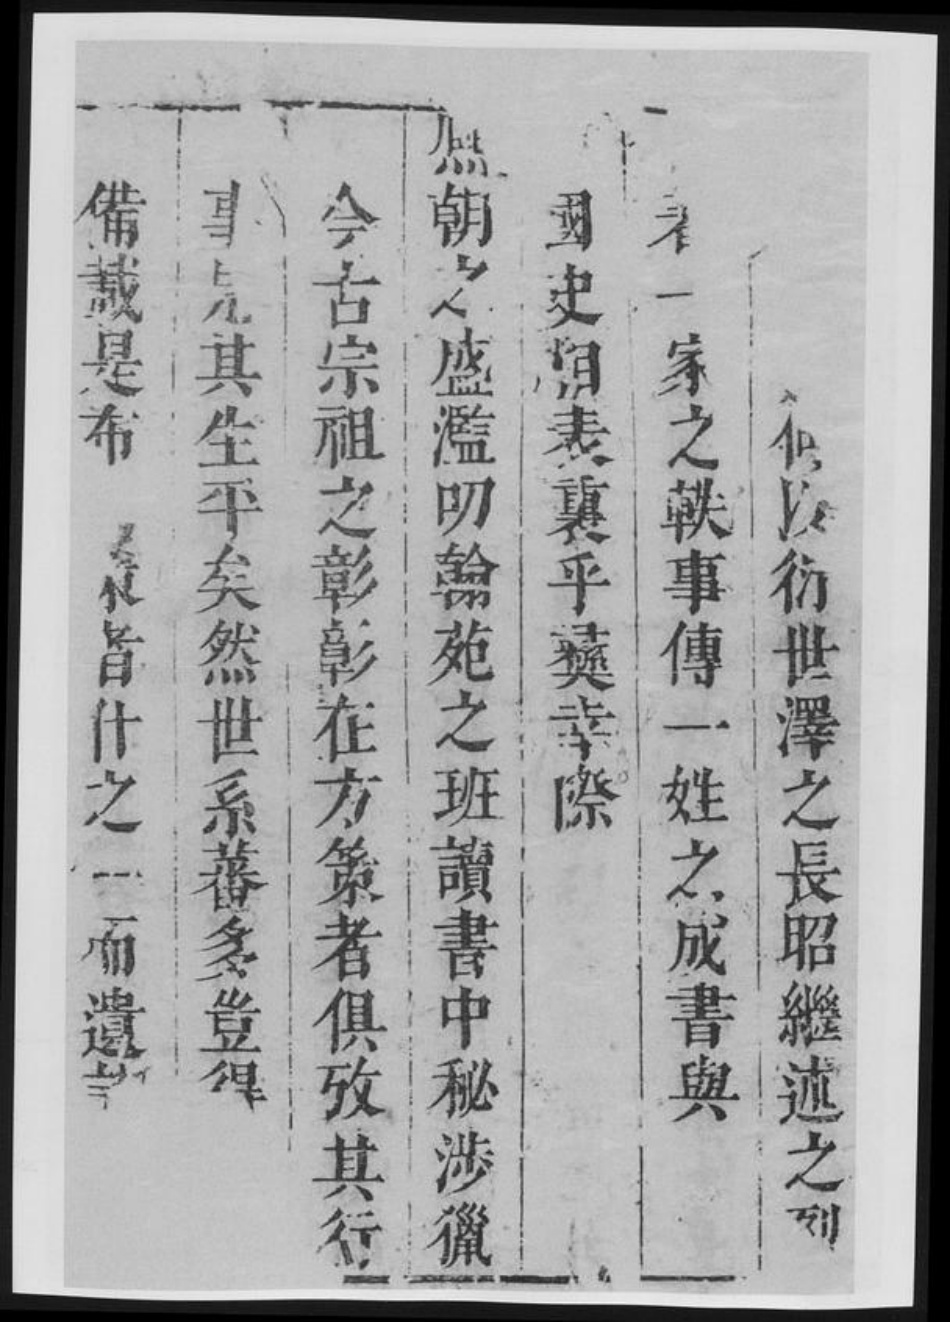 衍世澤之長昭繼述之列
者一家之軼事傳一姓之成書與
國史相表裏乎猗幸際
熈朝之盛濫叨翰苑之班讀書中秘涉獵
今古宗祖之彰彰在方策者俱攷其行
事見其生平矣然世系蕃多豈得
備載是布 者什之一而遺